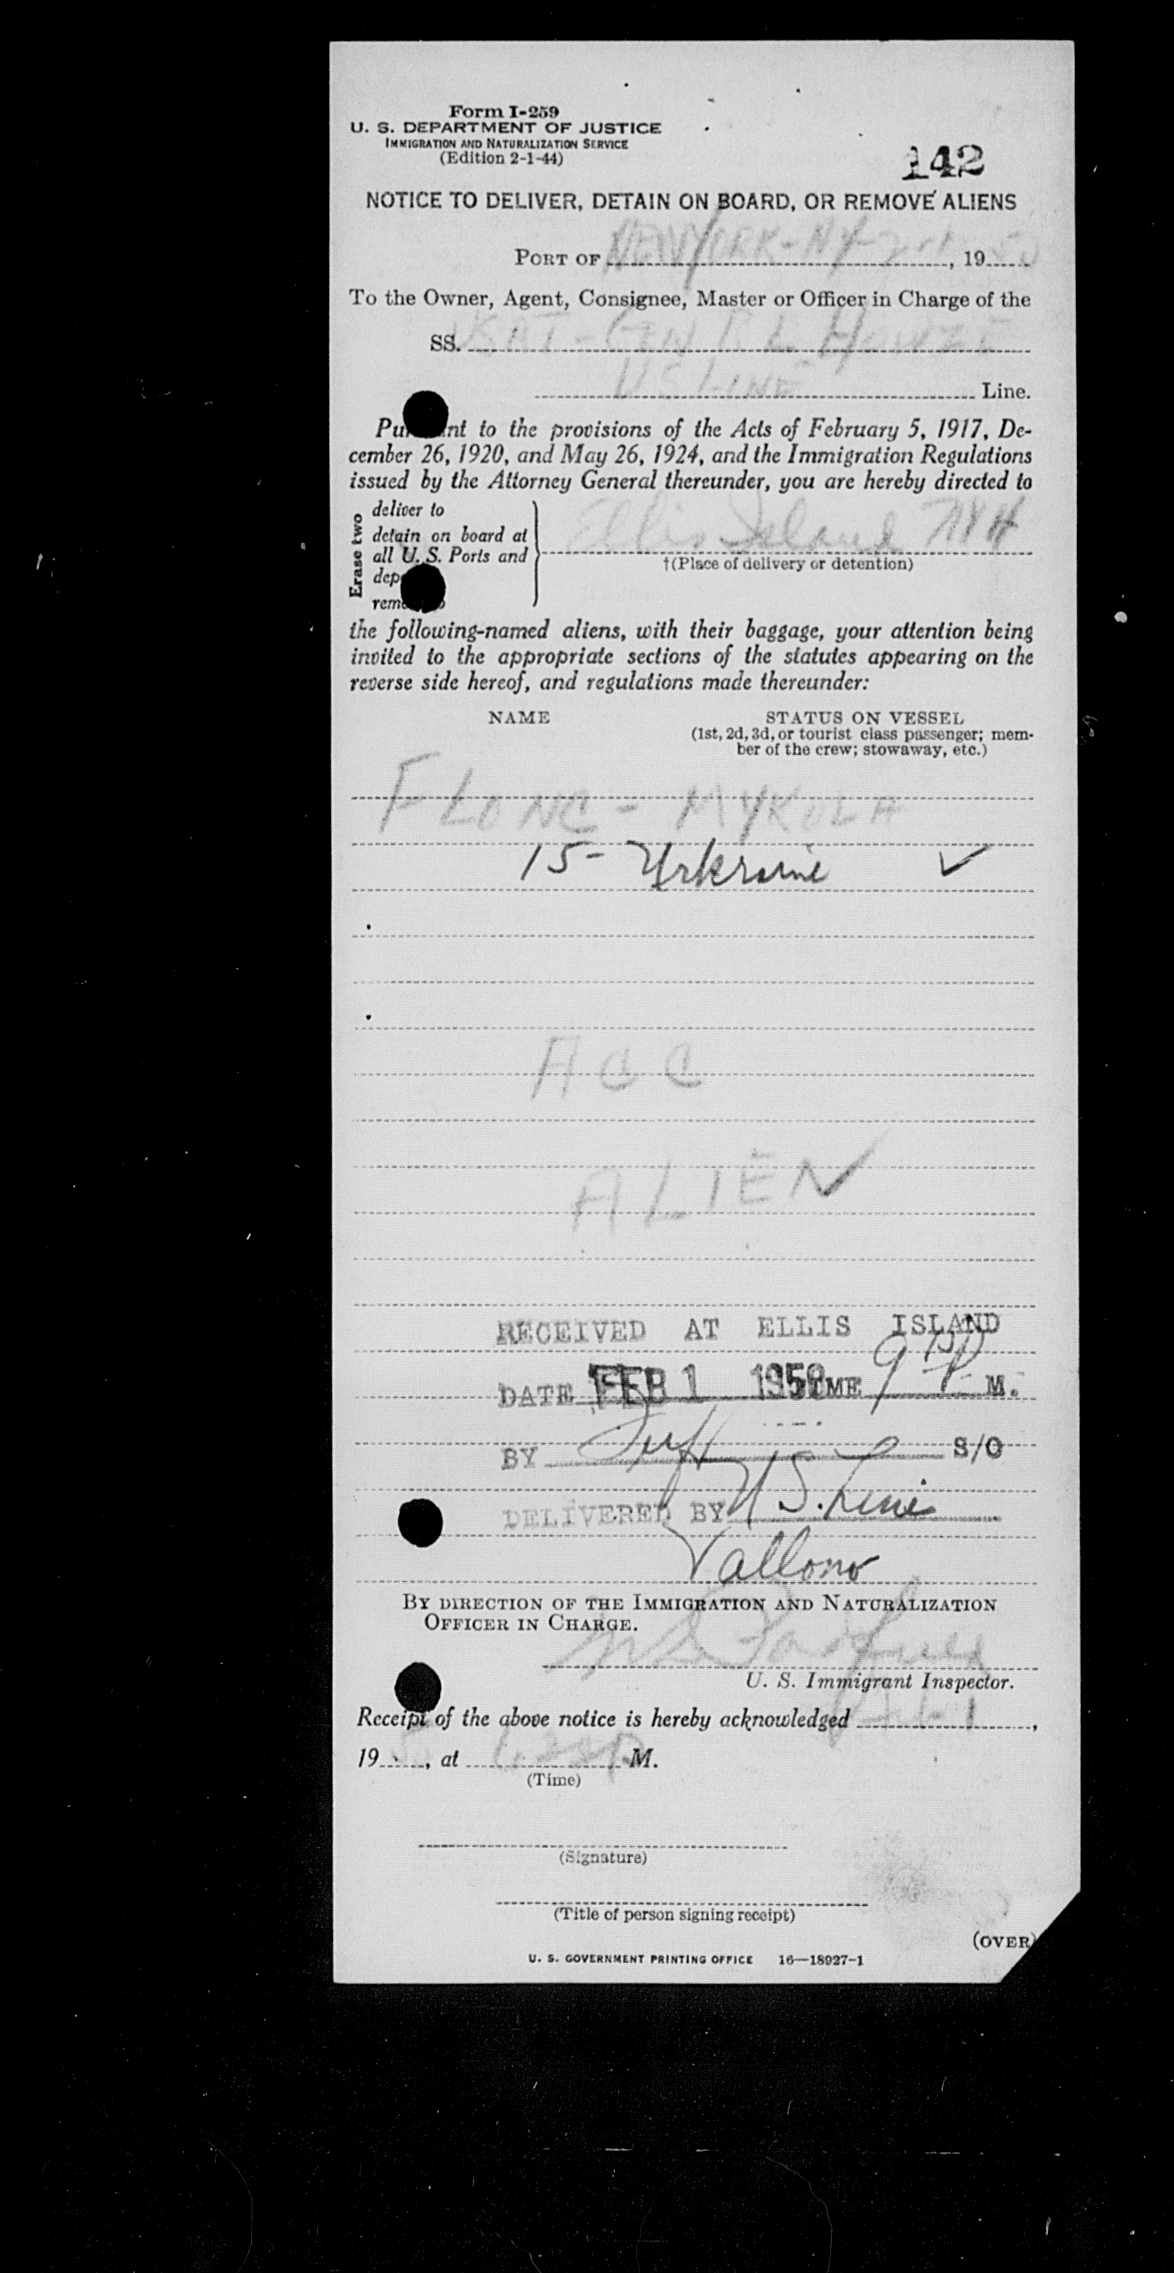 Form I-259
U. S. DEPARTMENT OF JUSTICE
IMMIGRATION AND NATURALIZATION SERVICE
(Edition 2-1-44)
142
NOTICE TO DELIVER, DETAIN ON BOARD, OR REMOVE ALIENS
PORT OF NEW YORK-NY-2-1, 1950
To the Owner, Agent, Consignee, Master or Officer in Charge of the
SS. GEN R L HOWZE
US LINE Line.
Pursuant to the provisions of the Acts of February 5, 1917, De-
cember 26, 1920, and May 26, 1924, and the Immigration Regulations
issued by the Attorney General thereunder, you are hereby directed to
Erase two
deliver to
detain on board at
all U. S. Ports and
Ellis Island NYH
†(Place of delivery or detention)
the following-named aliens, with their baggage, your attention being
invited to the appropriate sections of the statutes appearing on the
reverse side hereof, and regulations made thereunder:
NAME STATUS ON VESSEL
(1st, 2d, 3d, or tourist class passenger; mem-
ber of the crew; stowaway, etc.)
FLONC - MYKOLA
15 - Urkraine ✓
ACC
ALIEN
RECEIVED AT ELLIS ISLAND
DATE FEB 1 TIME 9 P M.
BY S/O
DELIVERED BY U S. Line
Vallono
BY DIRECTION OF THE IMMIGRATION AND NATURALIZATION
OFFICER IN CHARGE.
U. S. Immigrant Inspector.
Receipt of the above notice is hereby acknowledged ,
19 , at M.
(Time)
(Signature)
(Title of person signing receipt)
(OVER)
U. S. GOVERNMENT PRINTING OFFICE 16—18927-1